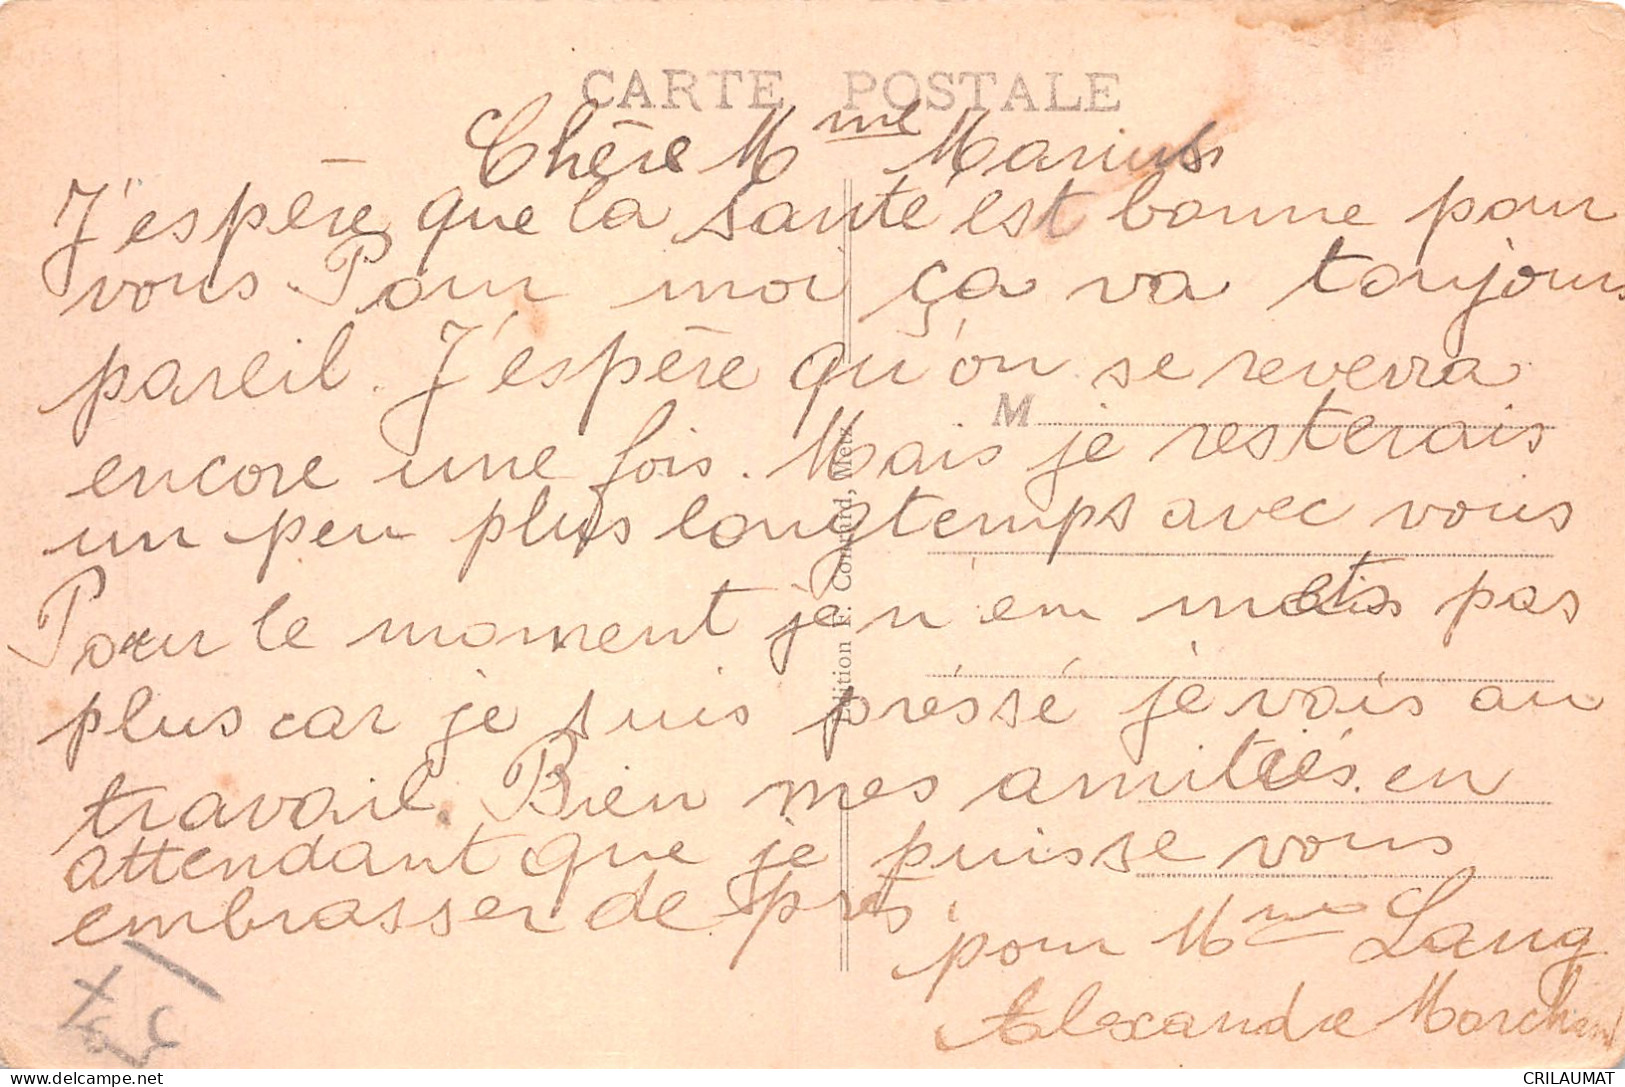 CARTE POSTALE
Chère Mme Marius
J'espère que la santé est bonne pour
vous. Pour moi ça va toujours
pareil. J'espère qu'on se reverra
M
encore une fois. Mais je resterais
un peu plus longtemps avec vous
Pour le moment je n'en mets pas
plus car je suis préssé je vais au
travail. Bien mes amitiés en
attendant que je puisse vous
embrasser de près.
pour Mme Lang
Alexandre Marchand
Edition E. Conrard, Metz
CRILAUMAT